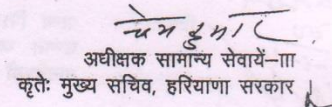 प्रेम कुमार
अधीक्षक सामान्य सेवायें-III
कृतेः मुख्य सचिव, हरियाणा सरकार